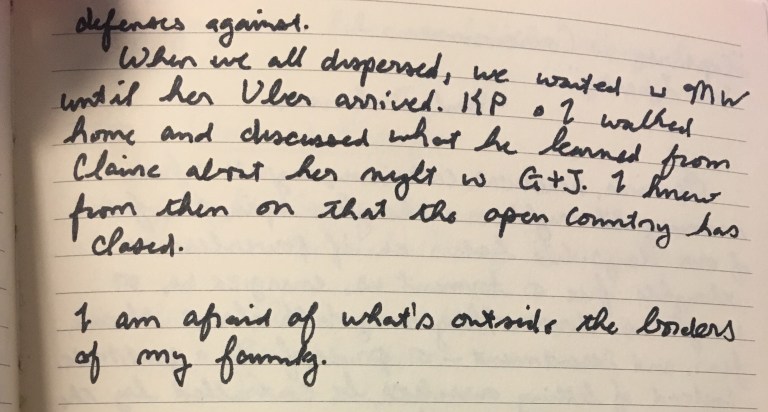 defenses against.
When we all dispersed, we waited w MW
until her Uber arrived. KP & I walked
home and discussed what he learned from
Claire about her night w G+J. I knew
from then on that the open country has
closed.
I am afraid of what's outside the borders
of my family.